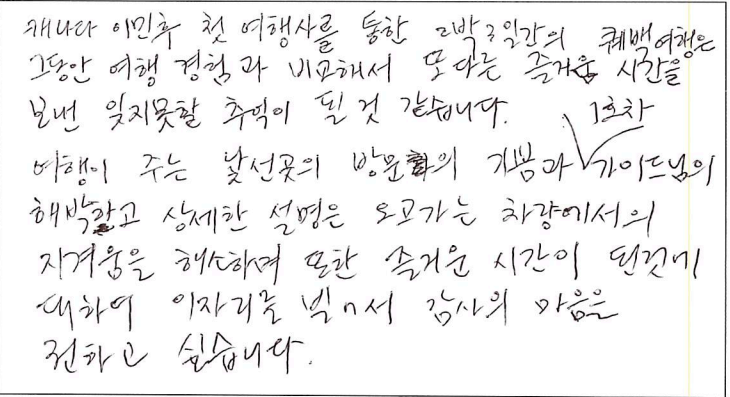 캐나다 이민후 첫 여행사를 통한 2박3일간의 퀘백여행은
그동안 여행 경험과 비교해서 또다른 즐거움 시간을
보낸 잊지못할 추억이 될 것 같습니다.
1호차
여행이 주는 낯선곳의 방문의 기쁨과 가이드님의
해박하고 상세한 설명은 오고가는 차량에서의
지겨움을 해소하며 또한 즐거운 시간이 된것에
대하여 이자리를 빌어서 감사의 마음을
전하고 싶습니다.